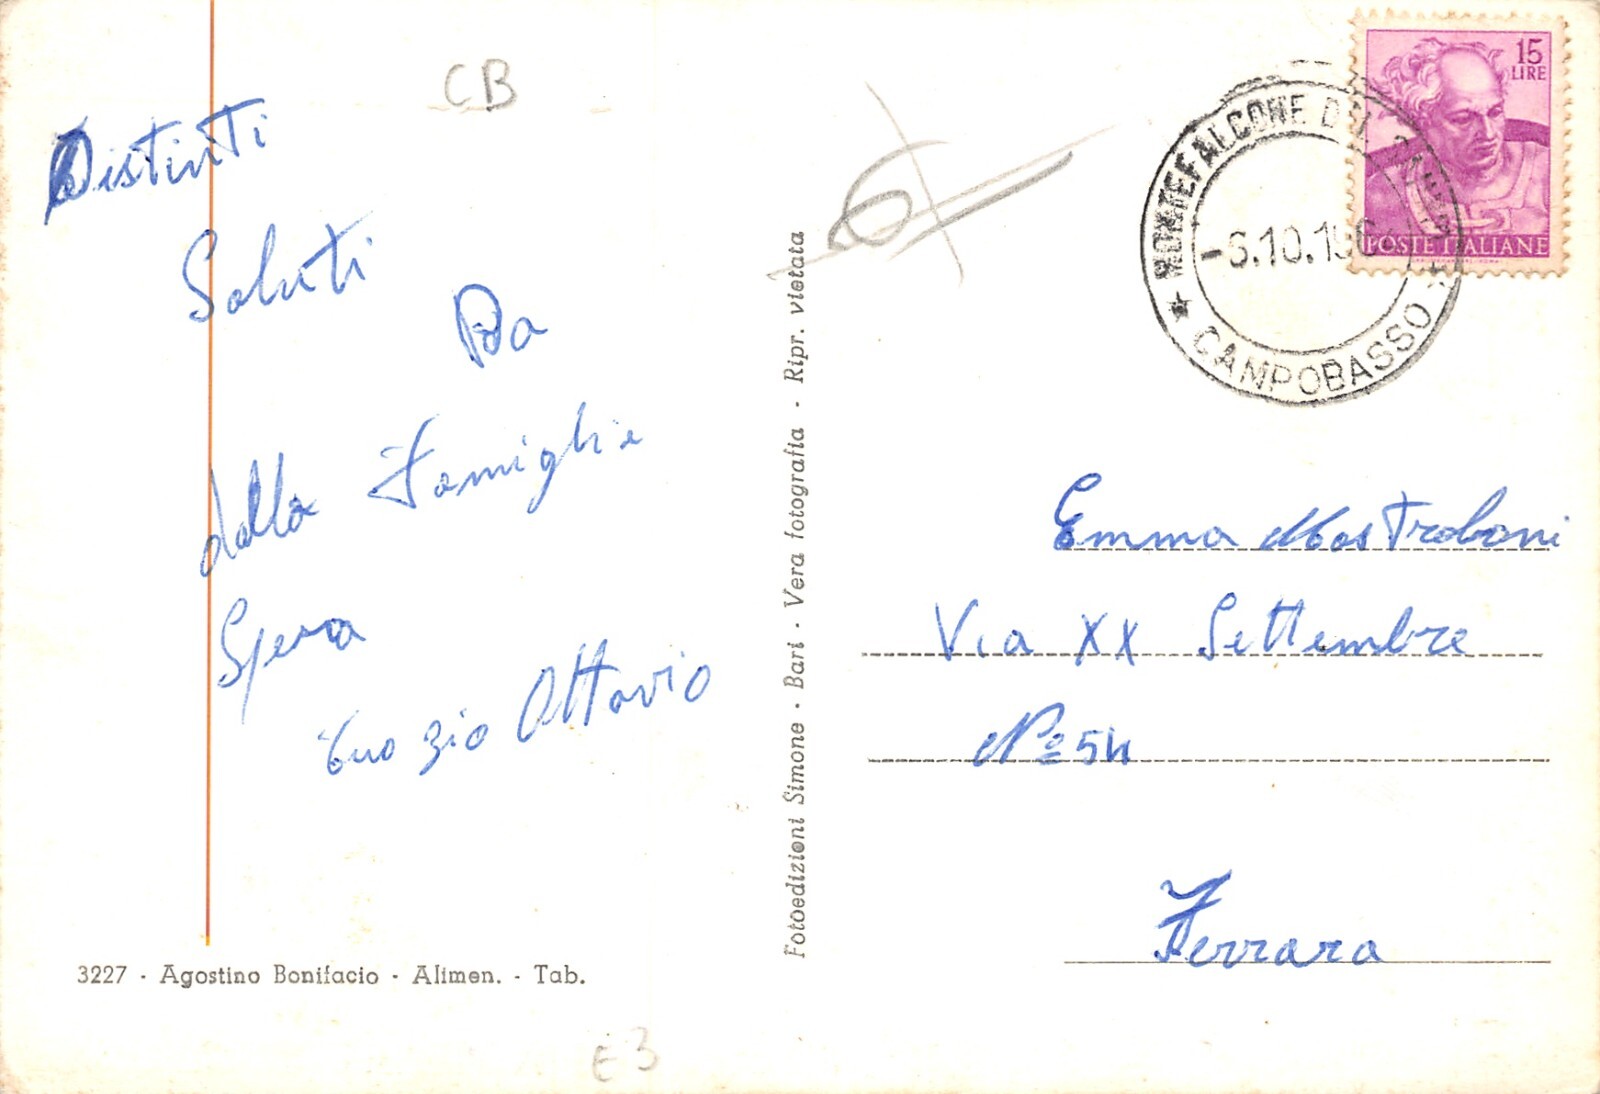 CB
Distinti
Saluti
Da
dalla Famiglia
Spera
tuo zio Ottavio
3227 - Agostino Bonifacio - Alimen. - Tab.
E3
Fotoedizioni Simone - Bari - Vera fotografia - Ripr. vietata
15
LIRE
POSTE ITALIANE
MONTEFALCONE DEL
-6.10.196
★ CAMPOBASSO ★
Emma Mastroboni
Via XX Settembre
Nº 54
Ferrara